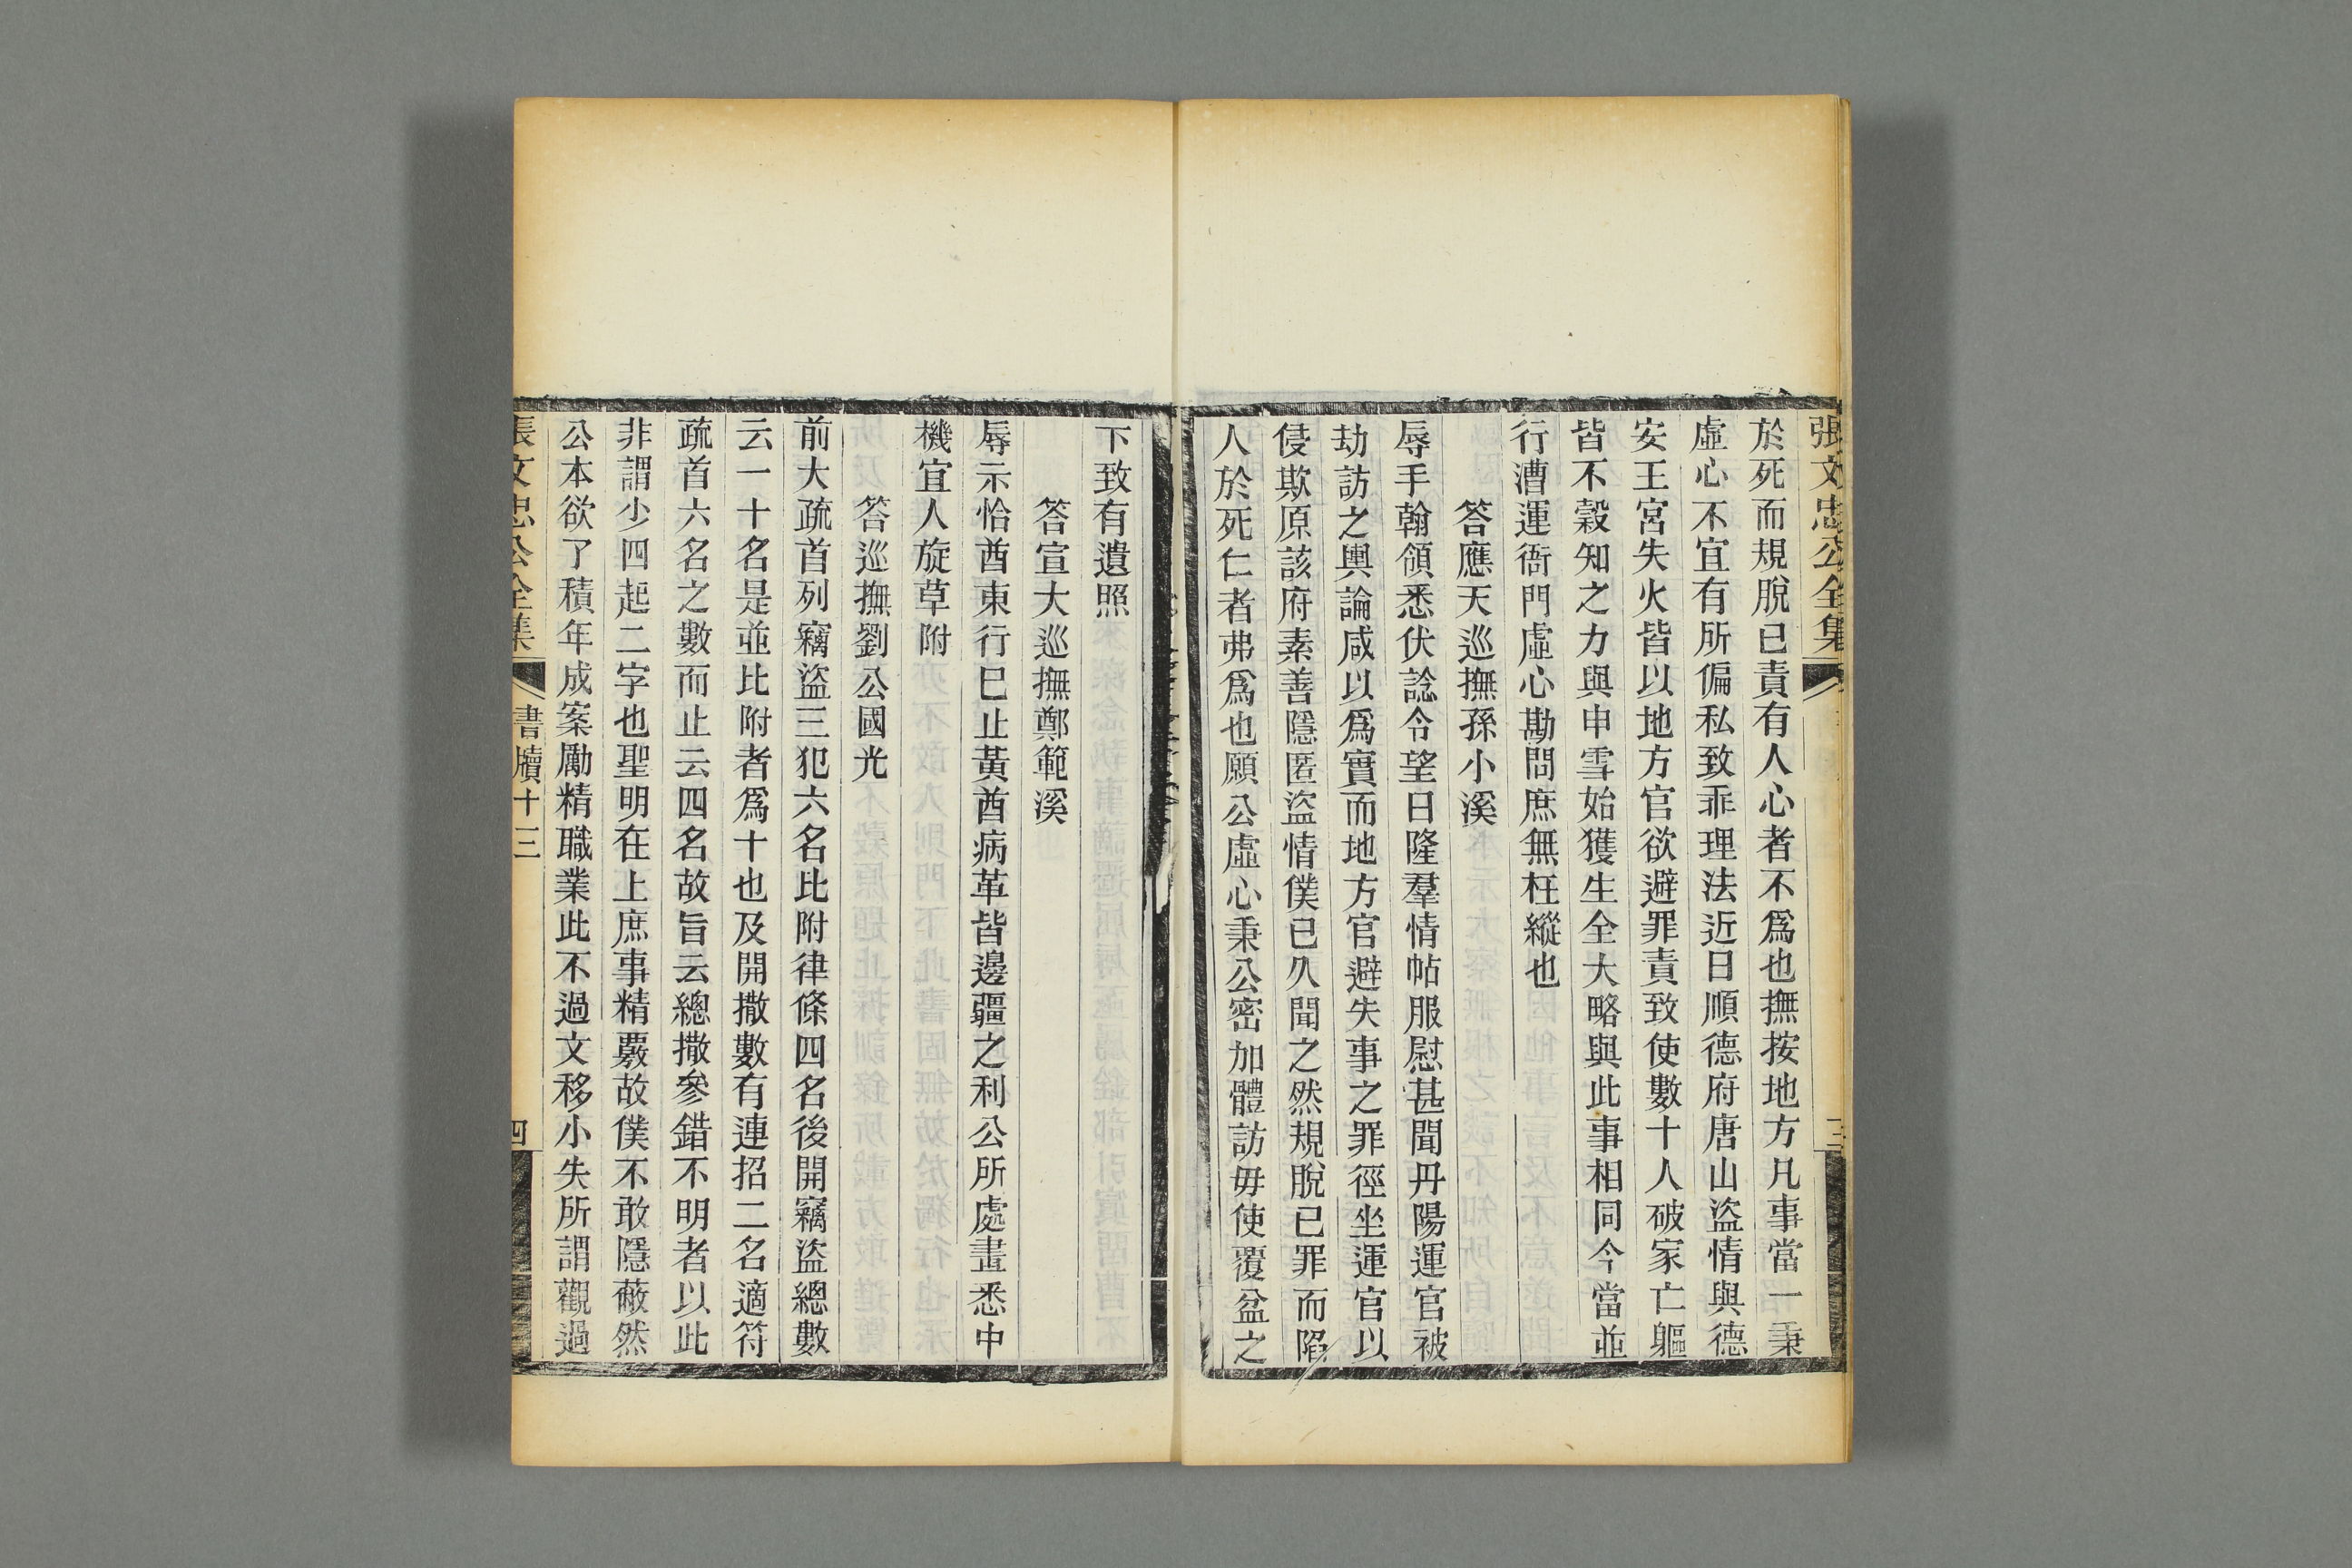 張文忠公全集 三
於死而規脫已責有人心者不爲也撫按地方凡事當一秉
虛心不宜有所偏私致乖理法近日順德府唐山盜情與德
安王宮失火皆以地方官欲避罪責致使數十人破家亡軀
皆不穀知之力與申雪始獲生全大略與此事相同今當並
行漕運衙門虛心勘問庶無枉縱也
答應天巡撫孫小溪
辱手翰領悉伏諗令望日隆羣情帖服慰甚聞丹陽運官被
劫訪之輿論咸以爲實而地方官避失事之罪徑坐運官以
侵欺原該府素善隱匿盜情僕已久聞之然規脫已罪而陷
人於死仁者弗爲也願公虛心秉公密加體訪毋使覆盆之
下致有遺照
答宣大巡撫鄭範溪
辱示恰酋東行已止黃酋病革皆邊疆之利公所處畫悉中
機宜人旋草附
答巡撫劉公國光
前大疏首列竊盜三犯六名比附律條四名後開竊盜總數
云一十名是並比附者爲十也及開撒數有連招二名適符
疏首六名之數而止云四名故旨云總撒參錯不明者以此
非謂少四起二字也聖明在上庶事精覈故僕不敢隱蔽然
公本欲了積年成案勵精職業此不過文移小失所謂觀過
張文忠公全集 書牘十三 四